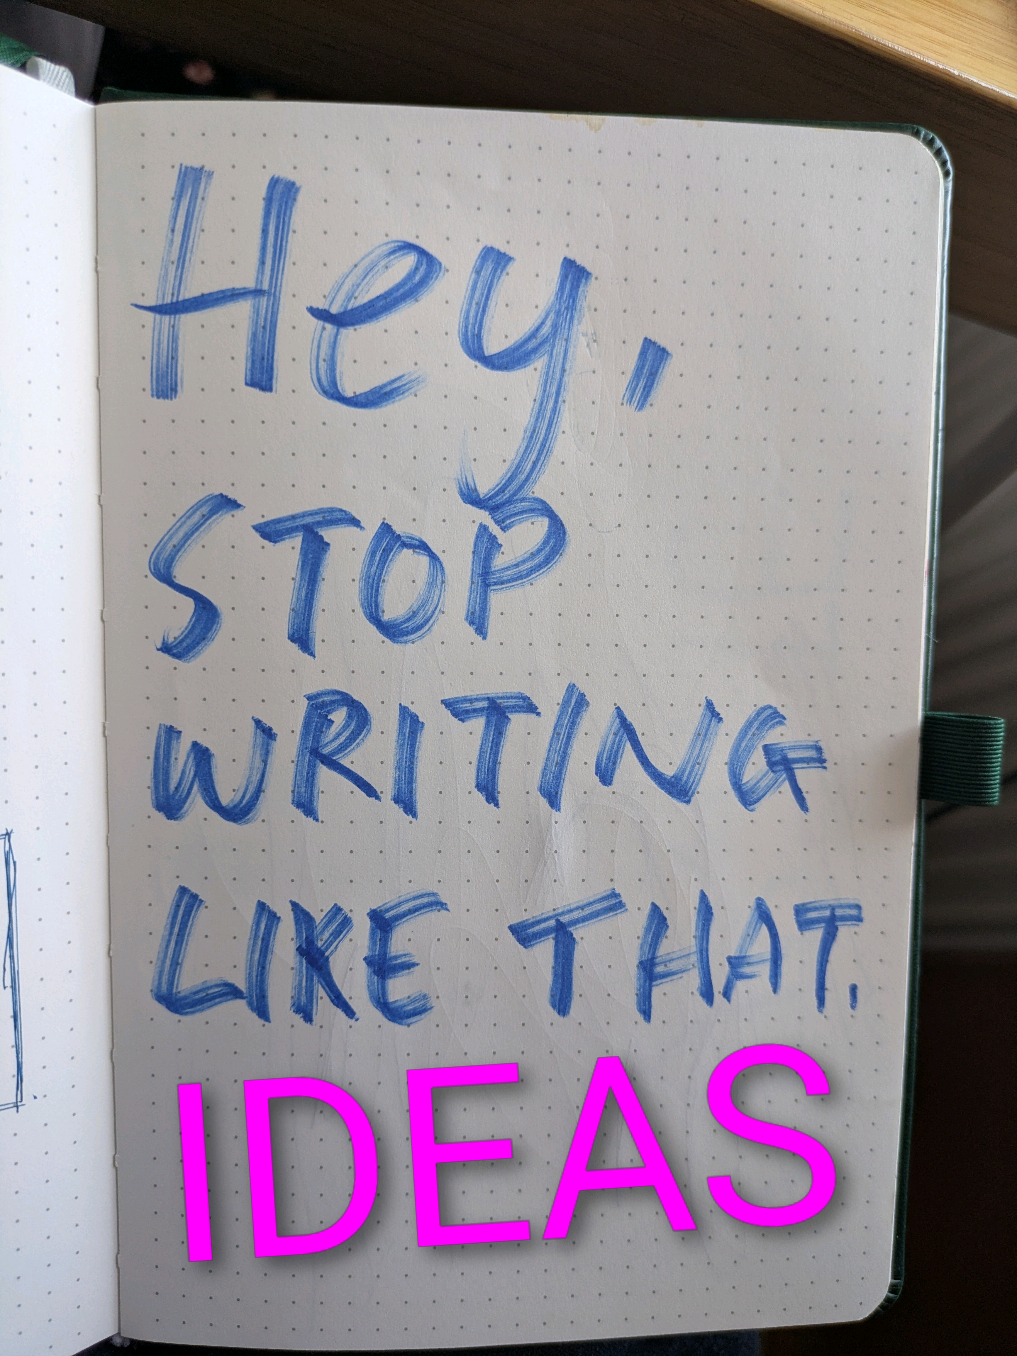 Hey,
STOP
WRITING
LIKE THAT.
IDEAS